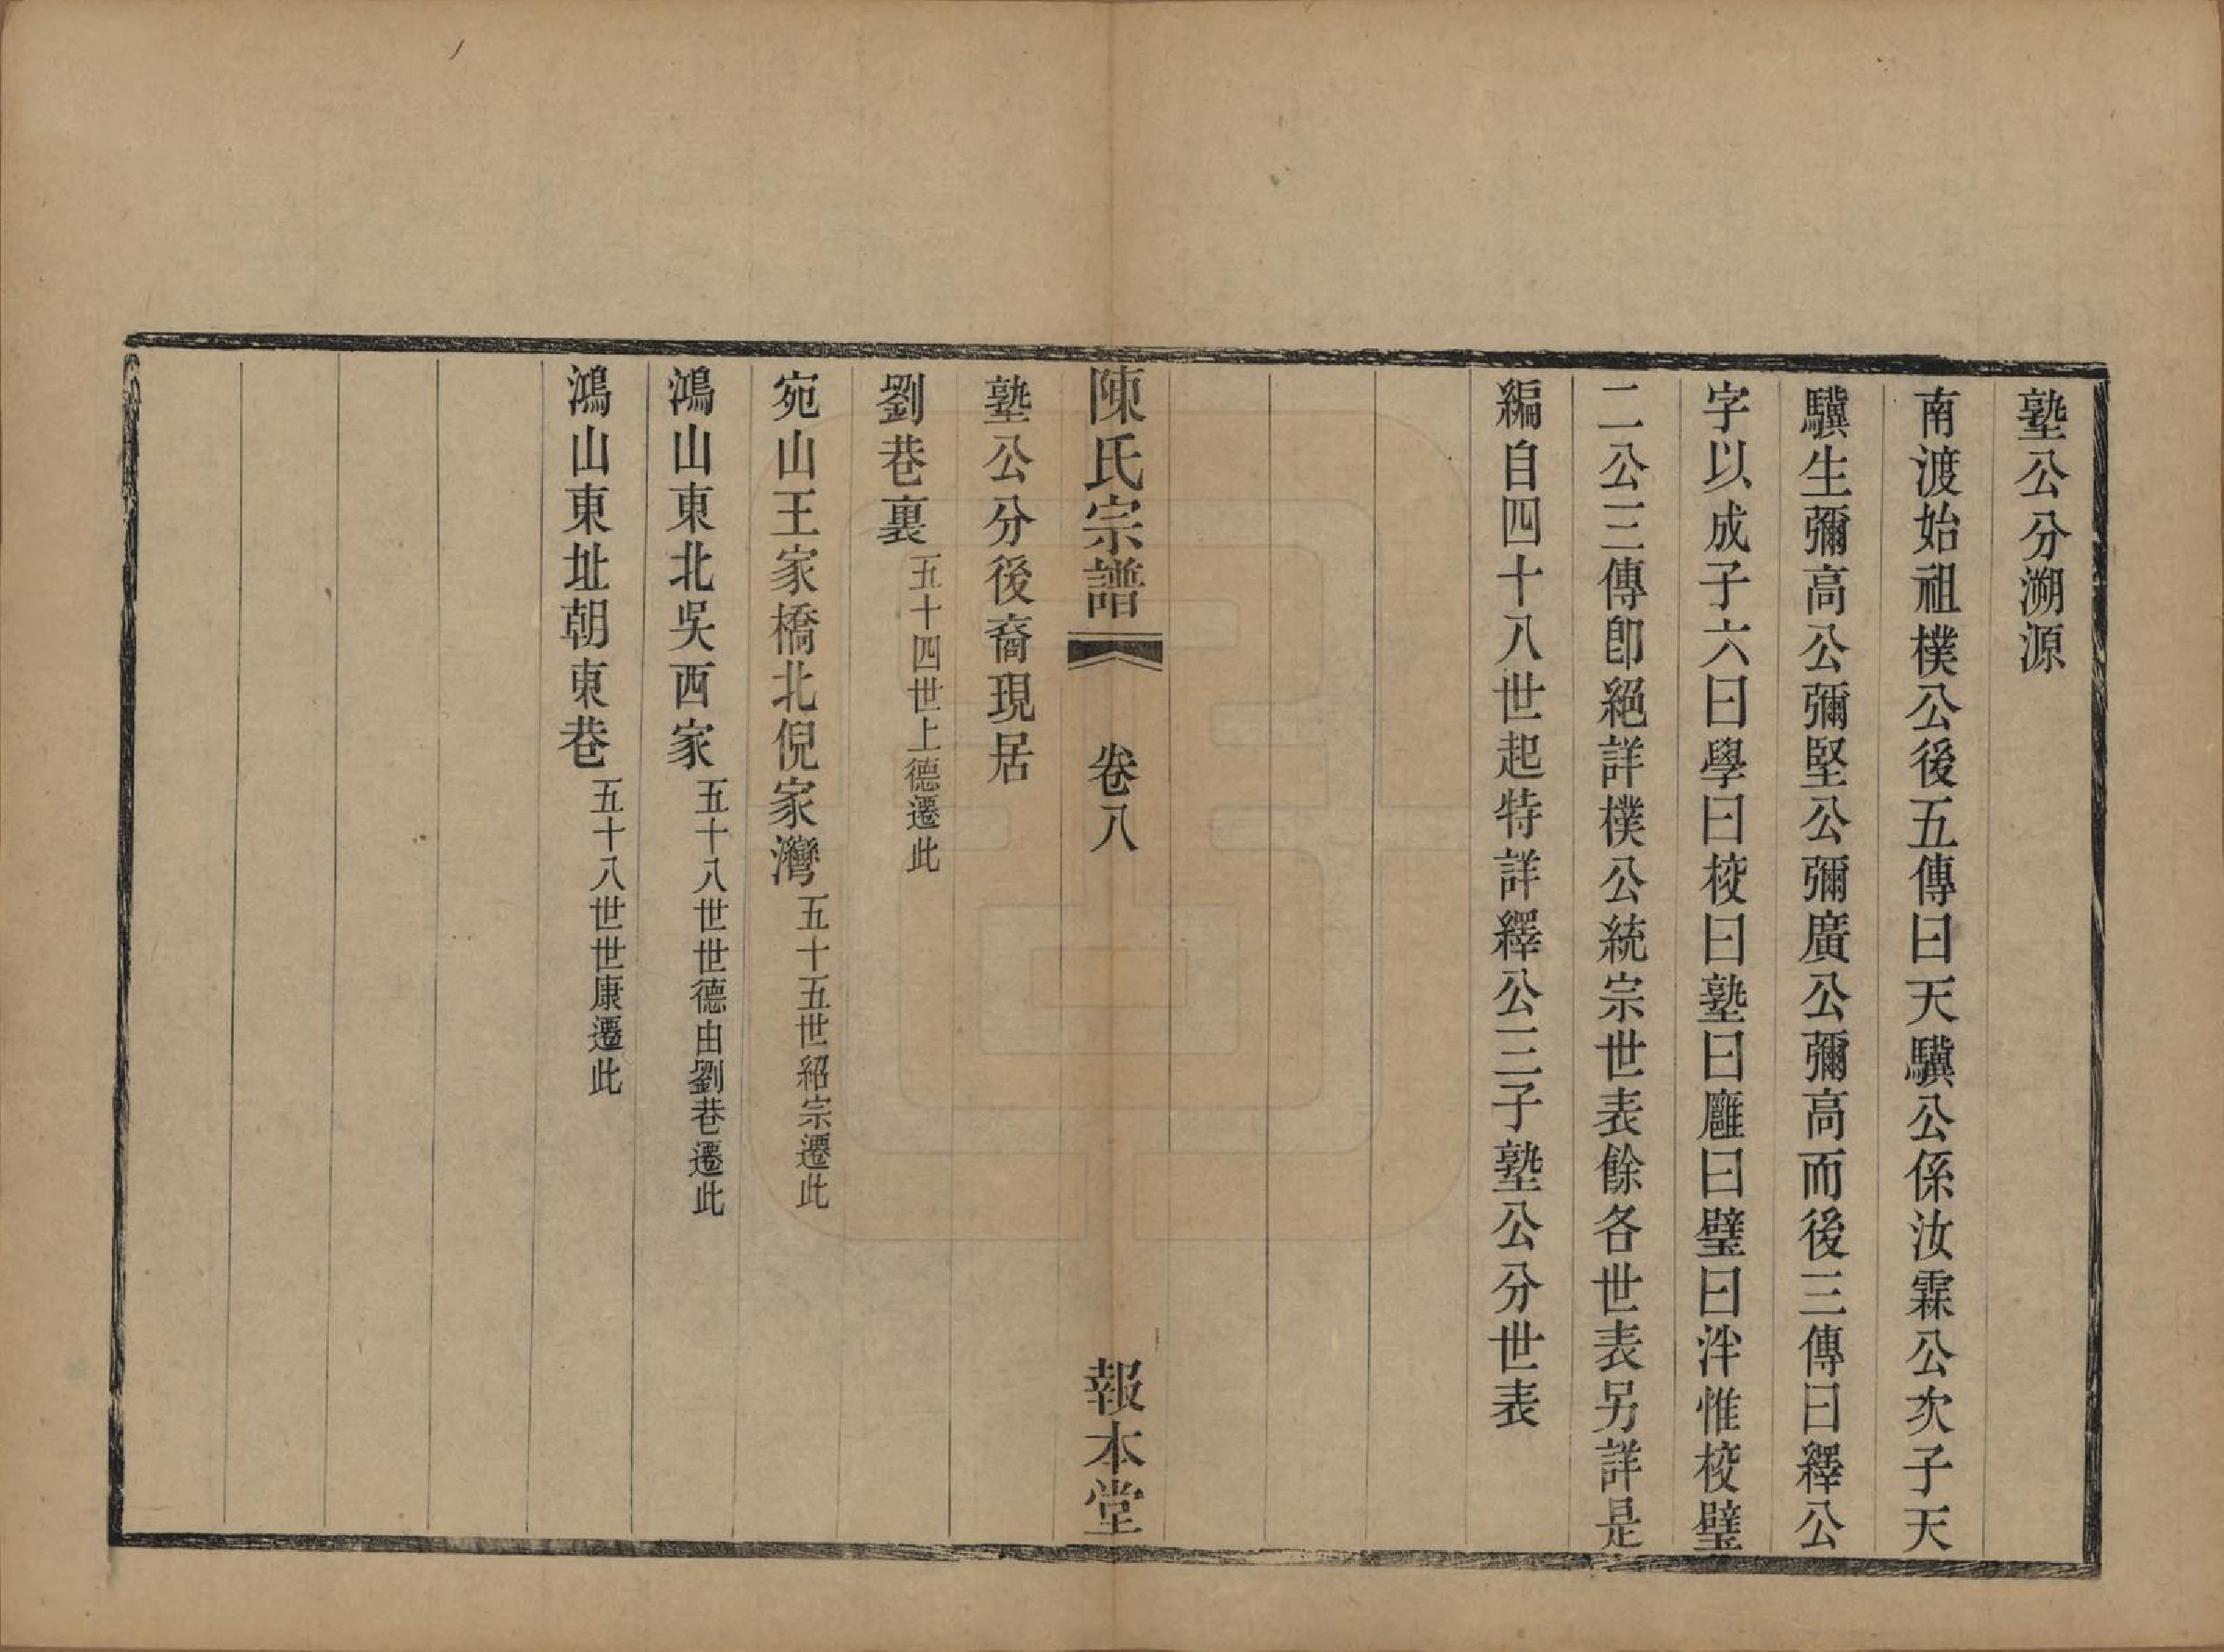 塾公分溯源
南渡始祖樸公後五傳曰天驥公係汝霖公次子天
驥生彌高公彌堅公彌廣公彌高而後三傳曰繹公
字以成子六曰學曰校曰塾曰廱曰璧曰泮惟校璧
二公三傳卽絕詳樸公統宗世表餘各世表另詳是
編自四十八世起特詳繹公三子塾公分世表
陳氏宗譜 卷八 報本堂
塾公分後裔現居
劉巷裏 五十四世上德遷此
宛山王家橋北倪家灣 五十五世紹宗遷此
鴻山東北吳西家 五十八世世德由劉巷遷此
鴻山東址朝東巷 五十八世世康遷此